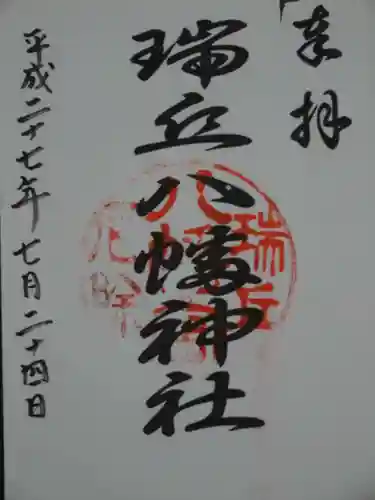 奉拝
瑞丘八幡神社
平成二十七年七月二十四日